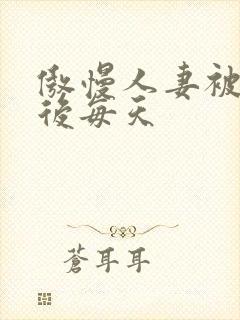 傲慢人妻被
後每天
蒼耳耳